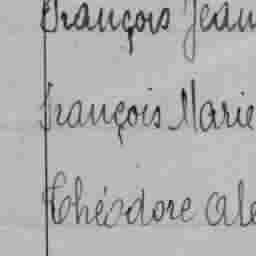 François Jean
François Marie
Théodore Ale